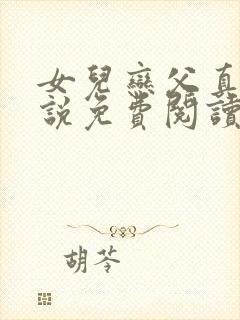 女兒戀父真
說免費閱讀
胡苓